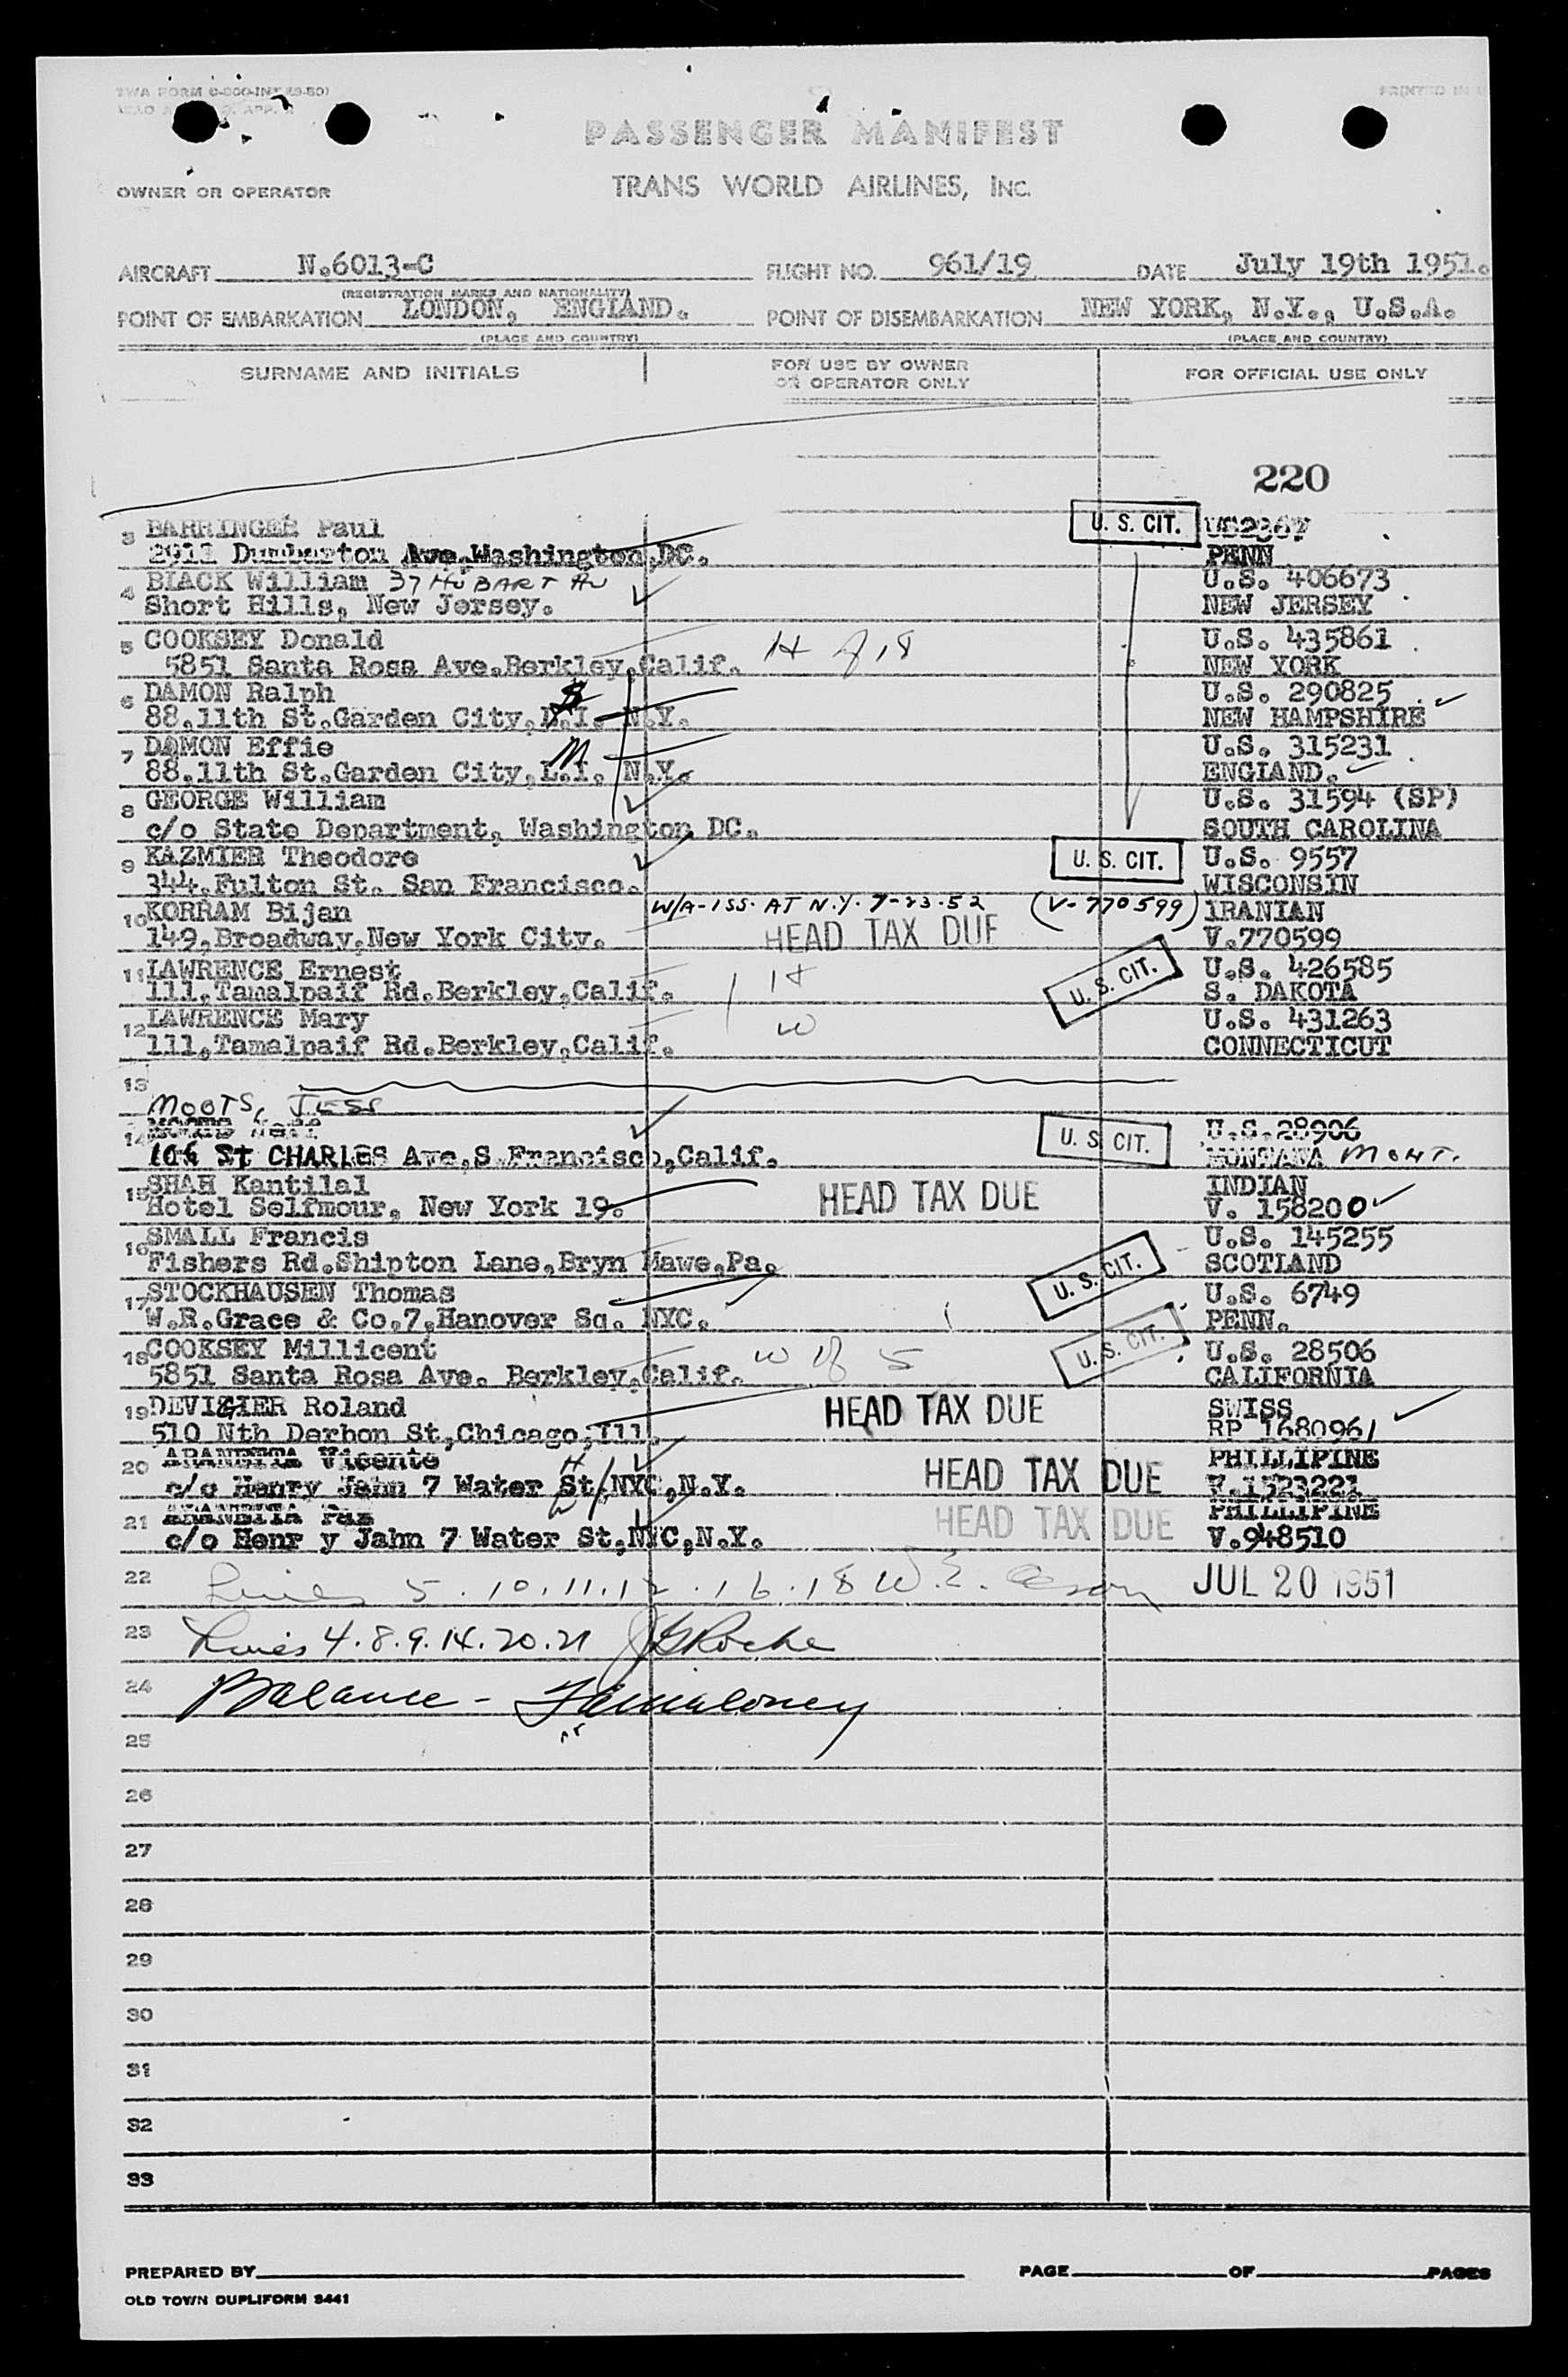 TWA FORM
PRINTED IN U
PASSENGER MANIFEST
OWNER OR OPERATOR TRANS WORLD AIRLINES, INC.
AIRCRAFT N.6013-C FLIGHT NO. 961/19 DATE July 19th 1951.
(REGISTRATION MARKS AND NATIONALITY)
POINT OF EMBARKATION LONDON, ENGLAND. POINT OF DISEMBARKATION NEW YORK, N.Y., U.S.A.
(PLACE AND COUNTRY) (PLACE AND COUNTRY)
SURNAME AND INITIALS FOR USE BY OWNER OR OPERATOR ONLY FOR OFFICIAL USE ONLY
220
3 BARRINGER Paul U. S. CIT. US2367
2911 Dumbarton Ave,Washington,DC. PENN
4 BLACK William 37 HOBART AV U.S. 406673
Short Hills, New Jersey. NEW JERSEY
5 COOKSEY Donald U.S. 435861
5851 Santa Rosa Ave.Berkley,Calif. H of 18 NEW YORK
6 DAMON Ralph U.S. 290825
88,11th St.Garden City,L.I. N.Y. NEW HAMPSHIRE
7 DAMON Effie M U.S. 315231
88,11th St.Garden City,L.I. N.Y. ENGLAND.
8 GEORGE William U.S. 31594 (SP)
c/o State Department, Washington DC. SOUTH CAROLINA
9 KAZMIER Theodore U. S. CIT. U.S. 9557
344,Fulton St. San Francisco. WISCONSIN
10 KORRAM Bijan W/A-ISS. AT N.Y. 7-23-52 (V-770599) IRANIAN
149,Broadway,New York City. HEAD TAX DUE V.770599
11 LAWRENCE Ernest H U. S. CIT. U.S. 426585
111,Tamalpaif Rd.Berkley,Calif. S. DAKOTA
12 LAWRENCE Mary W U.S. 431263
111,Tamalpaif Rd.Berkley,Calif. CONNECTICUT
13
MOOTS, JESS
14 U. S. CIT. U.S.28906
106 St CHARLES Ave,S.Francisco,Calif. MONTANA MONT.
15 SHAH Kantilal INDIAN
Hotel Selfmour, New York 19. HEAD TAX DUE V. 158200
16 SMALL Francis U.S. 145255
Fishers Rd.Shipton Lane,Bryn Mawe,Pa. U. S. CIT. SCOTLAND
17 STOCKHAUSEN Thomas U.S. 6749
W.R.Grace & Co.7,Hanover Sq. NYC. PENN.
18 COOKSEY Millicent W of 5 U. S. CIT. U.S. 28506
5851 Santa Rosa Ave. Berkley,Calif. CALIFORNIA
19 DEVIGIER Roland HEAD TAX DUE SWISS
510 Nth Derhon St,Chicago,Ill. RP 1680961
20 ARANETTA Vicente PHILLIPINE
c/o Henry Jahn 7 Water St,NYC,N.Y. H W HEAD TAX DUE V.1523221
21 ARANETTA Paz PHILLIPINE
c/o Henr y Jahn 7 Water St,NYC,N.Y. HEAD TAX DUE V.948510
22 Lines 5.10.11.12.16.18 W.E. JUL 20 1951
23 Lines 4.8.9.14.20.21 JGRoche
24 Balance -
25
26
27
28
29
30
31
32
33
PREPARED BY PAGE OF PAGES
OLD TOWN DUPLIFORM 8441